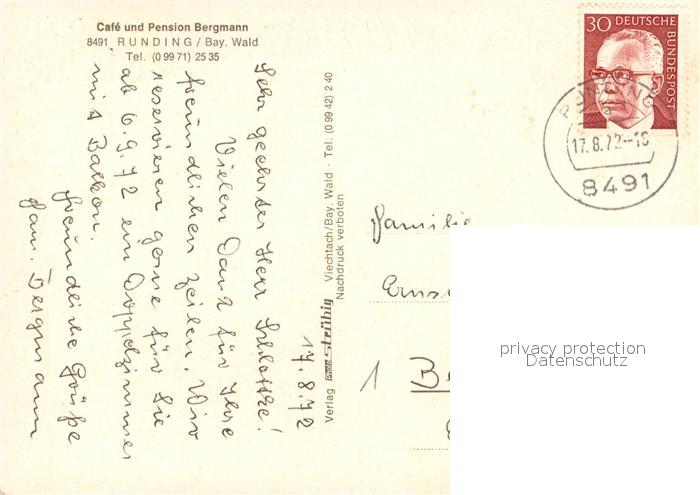 Café und Pension Bergmann
8491 RUNDING / Bay. Wald
Tel. (0 99 71) 25 35
17.8.72
Sehr geehrter Herr
Vielen Dank für Ihre
freundlichen Zeilen. Wir
reservieren gerne für Sie
ab 6.9.72 ein Doppelzimmer
mit Balkon.
Freundliche Grüße
Fam. Bergmann
Verlag Strübig Viechtach/Bay. Wald · Tel. (0 99 42) 2 40
Nachdruck verboten
30 DEUTSCHE
BUNDESPOST
RUNDING
a
17.8.72-16
8491
Familie
1
privacy protection
Datenschutz